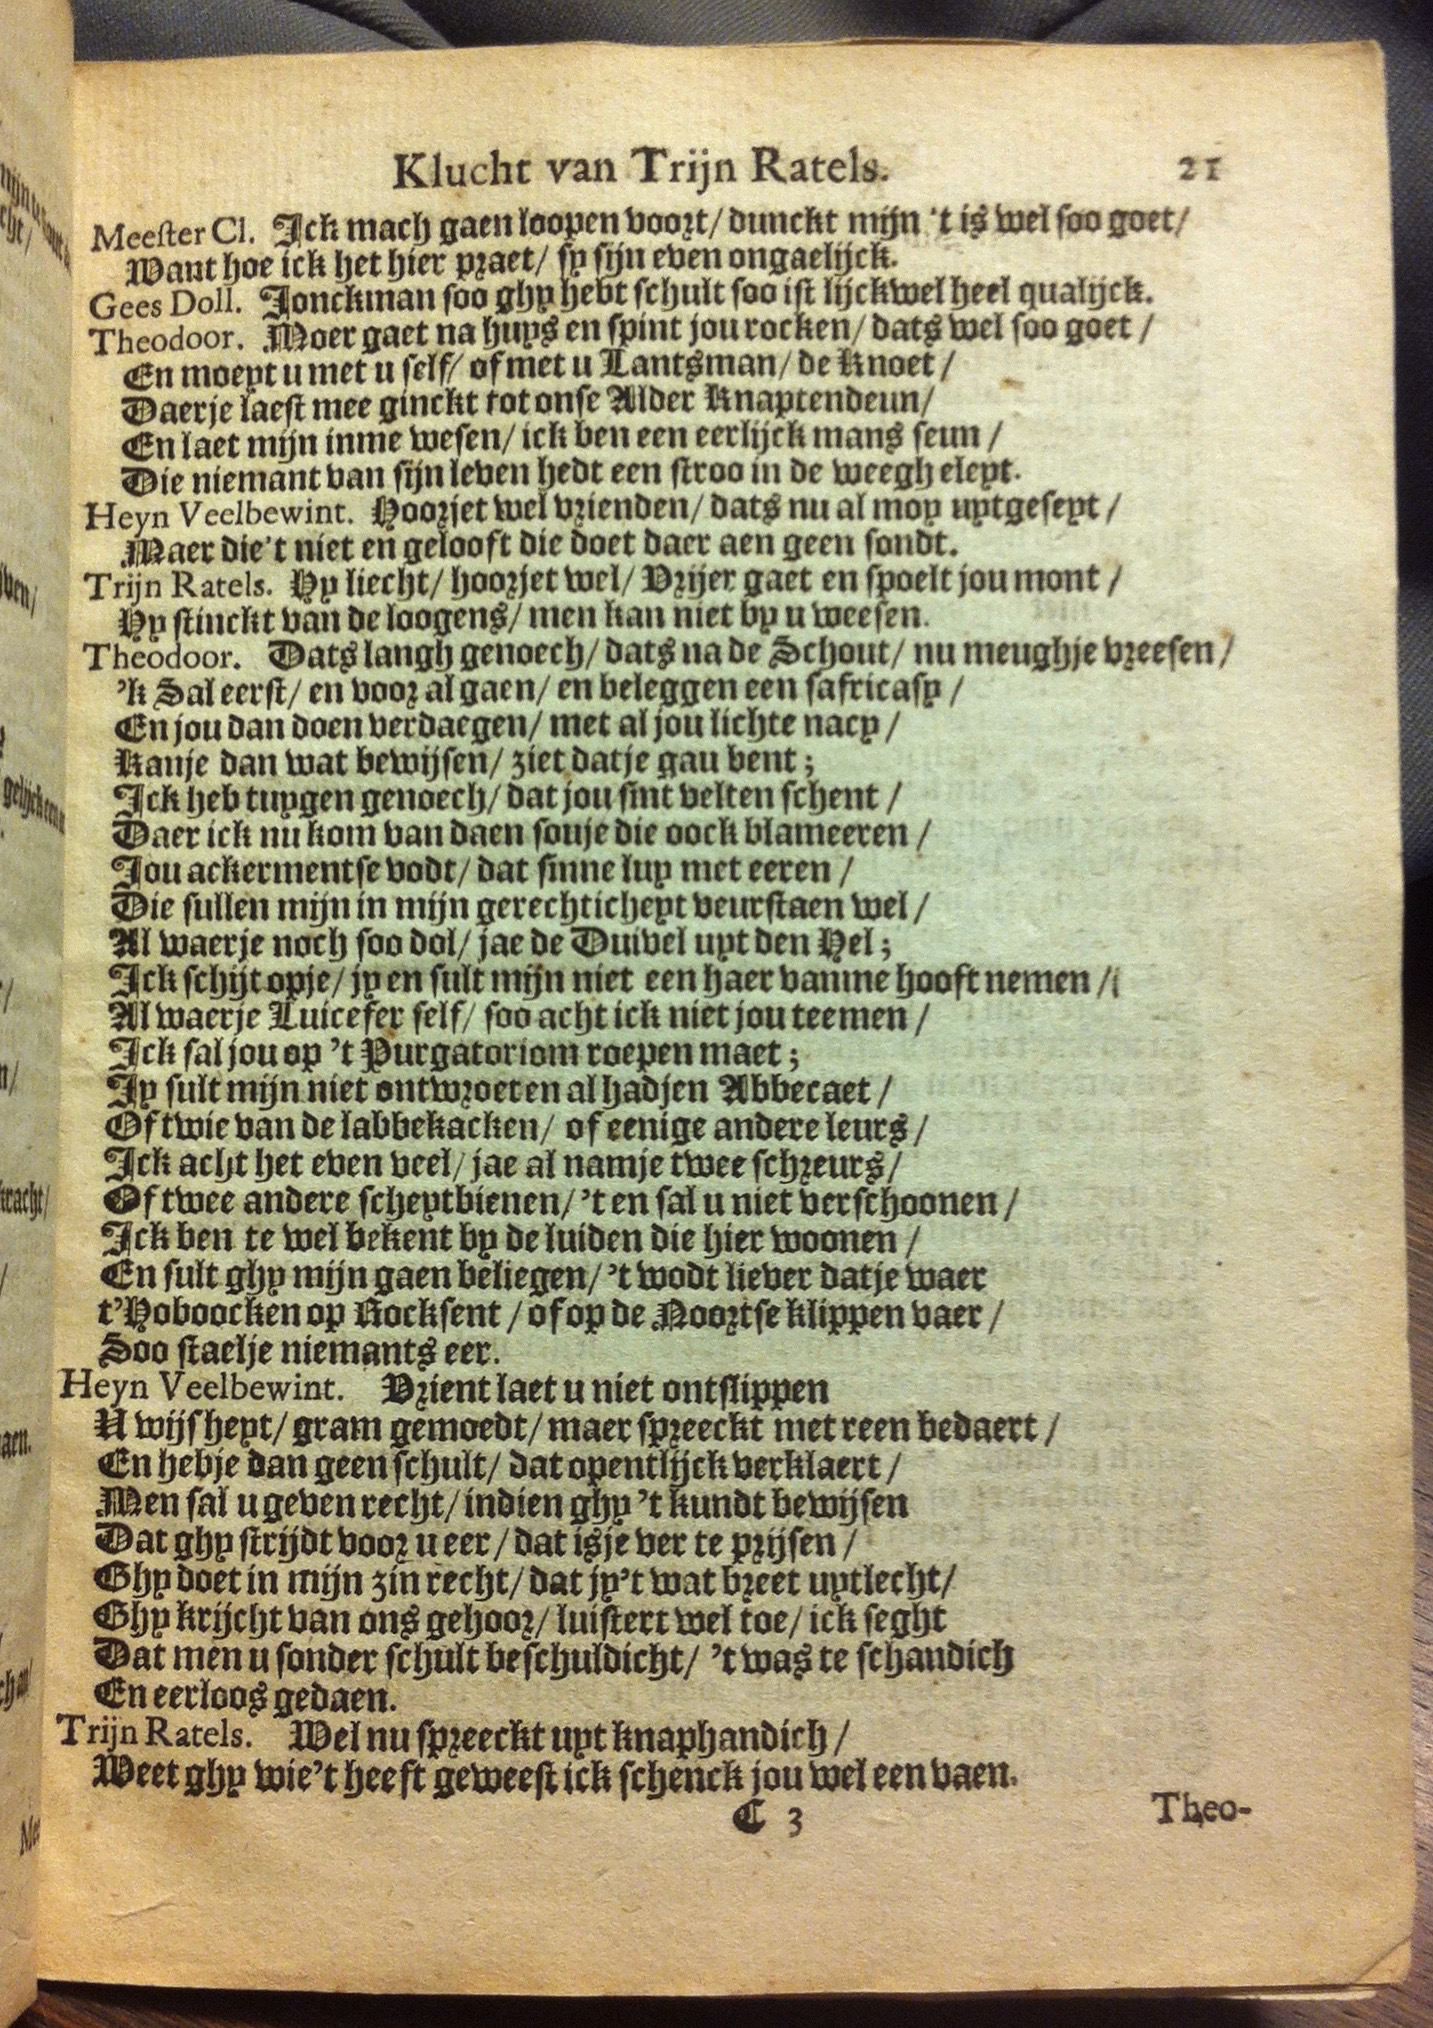 Klucht van Trijn Ratels. 21
Meester Cl. Ick mach gaen loopen voort/ dunckt mijn 't is wel soo goet/
Want hoe ick het hier praet/ sy sijn even ongaelijck.
Gees Doll. Jonckman soo ghy hebt schult soo ist lijckwel heel qualijck.
Theodoor. Moer gaet na huys en spint jou rocken/ dats wel soo goet/
En moeyt u met u self/ of met u Lantsman/ de Knoet/
Daerje laest mee ginckt tot onse Alder Knaptendeun/
En laet mijn inme wesen/ ick ben een eerlijck mans seun/
Die niemant van sijn leven hedt een stroo in de weegh eleyt.
Heyn Veelbewint. Hoorjet wel vrienden/ dats nu al moy uytgeseyt/
Maer die't niet en gelooft die doet daer aen geen sondt.
Trijn Ratels. Hy liecht/ hoorjet wel/ Vrijer gaet en spoelt jou mont/
Hy stinckt van de loogens/ men kan niet by u weesen.
Theodoor. Dats langh genoech/ dats na de Schout/ nu meughje vreesen/
'k Sal eerst/ en voor al gaen/ en beleggen een safricasy/
En jou dan doen verdaegen/ met al jou lichte nacy/
Kanje dan wat bewijsen/ ziet datje gau bent;
Ick heb tuygen genoech/ dat jou sint velten schent/
Daer ick nu kom van daen souje die oock blameeren/
Jou ackermentse vodt/ dat sinne luy met eeren/
Die sullen mijn in mijn gerechticheyt veurstaen wel/
Al waerje noch soo dol/ jae de Duivel uyt den Hel;
Ick schijt opje/ jy en sult mijn niet een haer vanme hooft nemen/
Al waerje Luicefer self/ soo acht ick niet jou teemen/
Ick sal jou op 't Purgatoriom roepen maet;
Jy sult mijn niet ontwroeten al hadjen Abbecaet/
Of twie van de labbekacken/ of eenige andere leurs/
Ick acht het even veel/ jae al namje twee schreurs/
Of twee andere scheytbienen/ 't en sal u niet verschoonen/
Ick ben te wel bekent by de luiden die hier woonen/
En sult ghy mijn gaen beliegen/ 't wodt liever datje waer
t'Hoboocken op Rocksent/ of op de Noortse klippen vaer/
Soo staelje niemants eer.
Heyn Veelbewint. Vrient laet u niet ontslippen
U wijsheyt/ gram gemoedt/ maer spreeckt met reen bedaert/
En hebje dan geen schult/ dat opentlijck verklaert/
Men sal u geven recht/ indien ghy 't kundt bewijsen
Dat ghy strijdt voor u eer/ dat isje ver te prijsen/
Ghy doet in mijn zin recht/ dat jy't wat breet uytlecht/
Ghy krijcht van ons gehoor/ luistert wel toe/ ick seght
Dat men u sonder schult beschuldicht/ 't was te schandich
En eerloos gedaen.
Trijn Ratels. Wel nu spreeckt uyt knaphandich/
Weet ghy wie't heeft geweest ick schenck jou wel een vaen.
C 3 Theo-